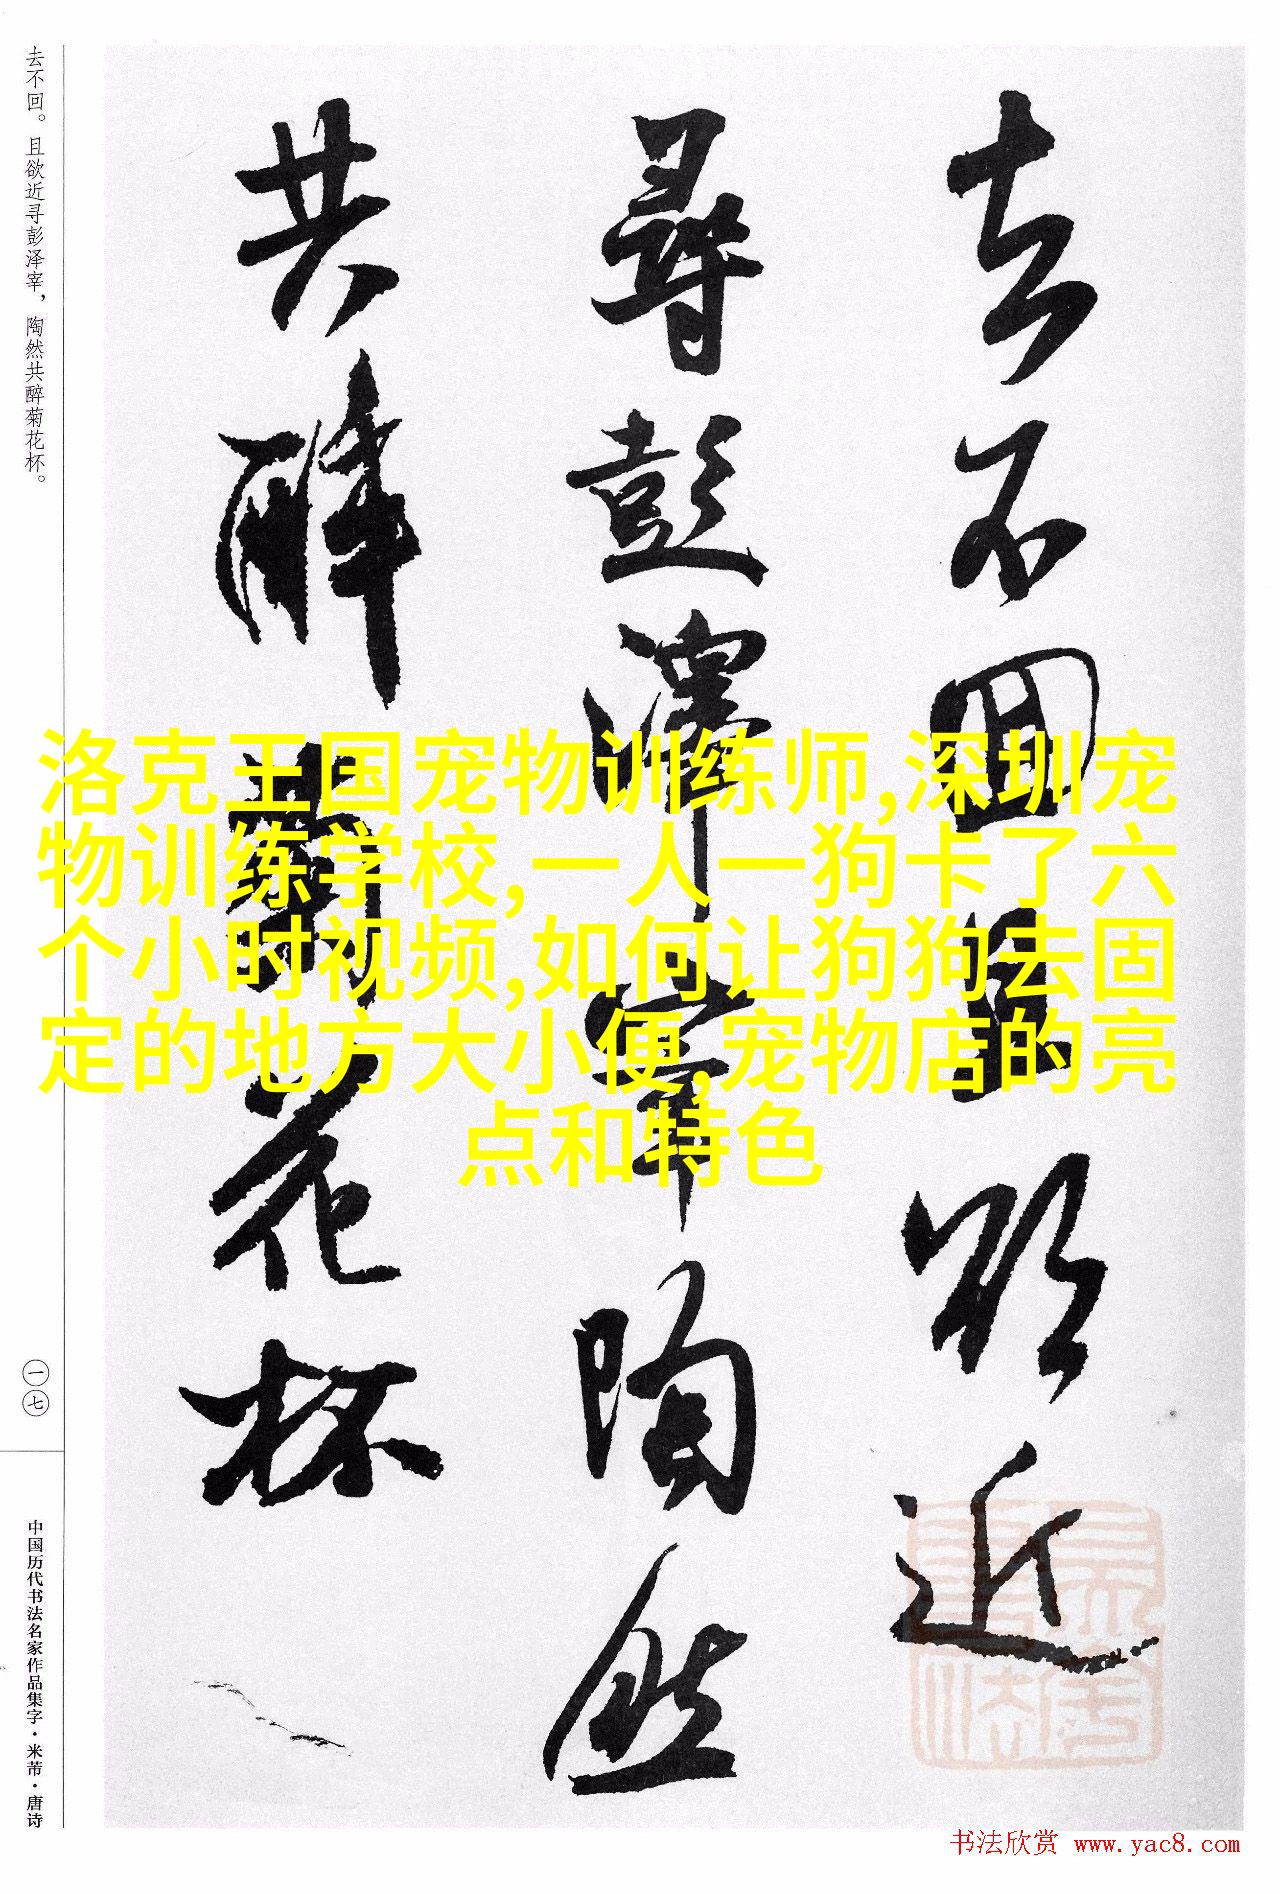 去不回。且欲近寻彭泽宰，陶然共醉菊花杯。
去不回且欲近
尋彭澤宰陶然
共醉菊花杯
洛克王国宠物训练师,深圳宠
物训练学校,一人一狗卡了六
个小时视频,如何让狗狗去固
定的地方大小便,宠物店的亮
点和特色
一七
中国历代书法名家作品集字·米芾·唐诗
书法欣赏 www.yac8.com